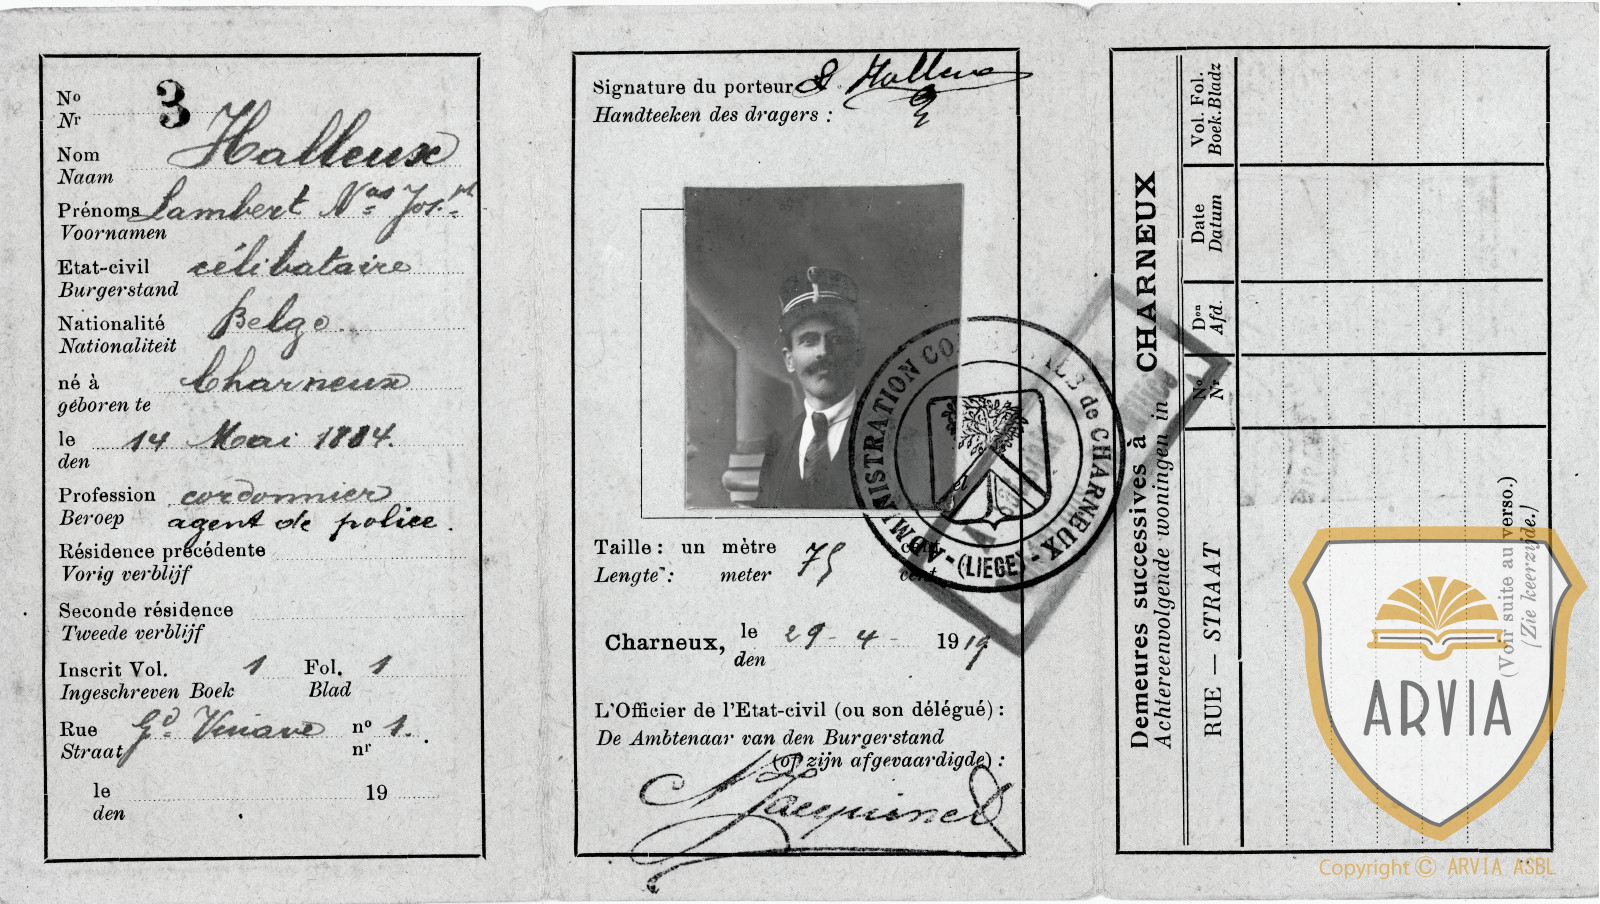 Nº 3
Nr
Nom Halleux
Naam
Prénoms Lambert Nas Jos.ph
Voornamen
Etat-civil célibataire
Burgerstand
Nationalité Belge
Nationaliteit
né à Charneux
géboren te
le 14 Mai 1884.
den
Profession cordonnier
Beroep agent de police.
Résidence précédente
Vorig verblijf
Seconde résidence
Tweede verblijf
Inscrit Vol. 1 Fol. 1
Ingeschreven Boek Blad
Rue Gd Vinave nº 1.
Straat nr
le 19
den
Signature du porteur L Halleux
Handteeken des dragers :
Taille : un mètre 75 cent.
Lengte : meter cent.
Charneux, le 29-4-1919
den
L'Officier de l'Etat-civil (ou son délégué) :
De Ambtenaar van den Burgerstand
(of zijn afgevaardigde) :
ADMINISTRATION COMMUNALE de CHARNEUX
-(LIEGE)-
Demeures successives à CHARNEUX
Achtereenvolgende woningen in
Vol. Fol.
Boek. Bladz
Date
Datum
Don
Afd.
Nº
Nr
RUE — STRAAT
(Voir suite au verso.)
(Zie keerzijde.)
ARVIA
Copyright © ARVIA ASBL